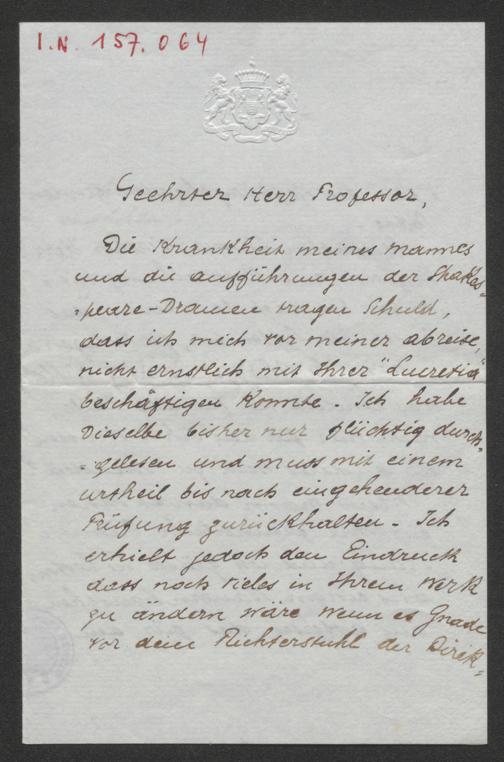 I.N. 157.064
Geehrter Herr Professor,
Die Krankheit meines Mannes
und die Aufführungen der Shakes=
=peare-Dramen tragen Schuld,
dass ich mich vor meiner Abreise,
nicht ernstlich mit Ihrer "Lucretia"
beschäftigen konnte. Ich habe
Dieselbe bisher nur flüchtig durch=
=gelesen und muss mit einem
Urtheil bis nach eingehenderer
Prüfung zurückhalten. Ich
erhielt jedoch den Eindruck
dass noch vieles in Ihrem Werk
zu ändern wäre wenn es Gnade
vor dem Richterstuhl der Direk=